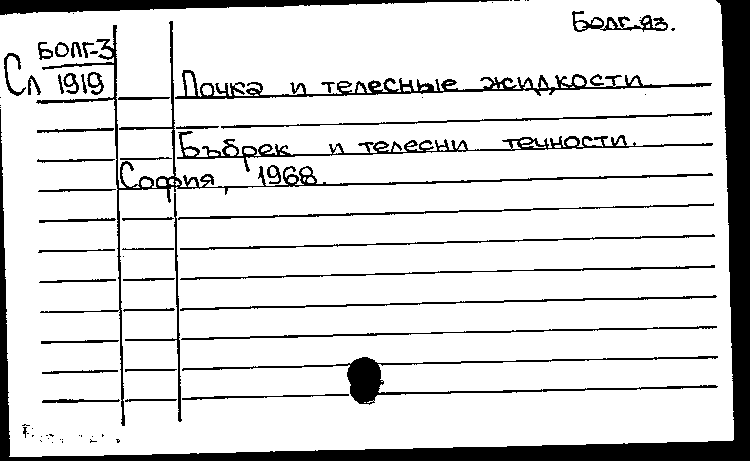 Болг.яз.
БОЛГ-3
Сл 1919
Почка и телесные жидкости
Бъбрек и телесни течности.
София, 1968.